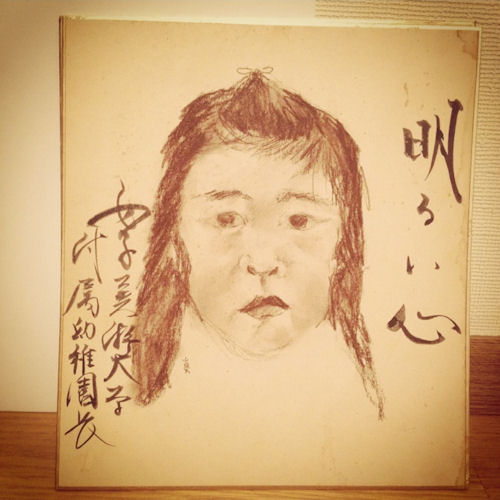 明るい心
女子美術大学
付属幼稚園長